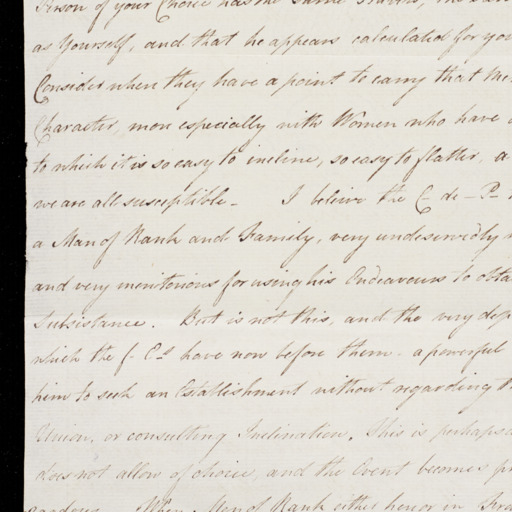 Person of your Choice has the same
as Yourself, and that he appears calculated for you
Consider when they have a point to carry that
Character, more especially with Women who have
to which it is so easy to incline, so easy to flatter, a
we are all susceptible - I believe the C- de - P-
a Man of Rank and Family, very undeservedly
and very meritorious for using his Endeavours to obta
Subsistance. But is not this, and the very dep
which the f- Es have now before them - a powerful
him to seek an Establishment without regarding th
Union, or consulting Inclination. This is perhaps
does not allow of choice, and the Event becomes
Man of Rank either honor in